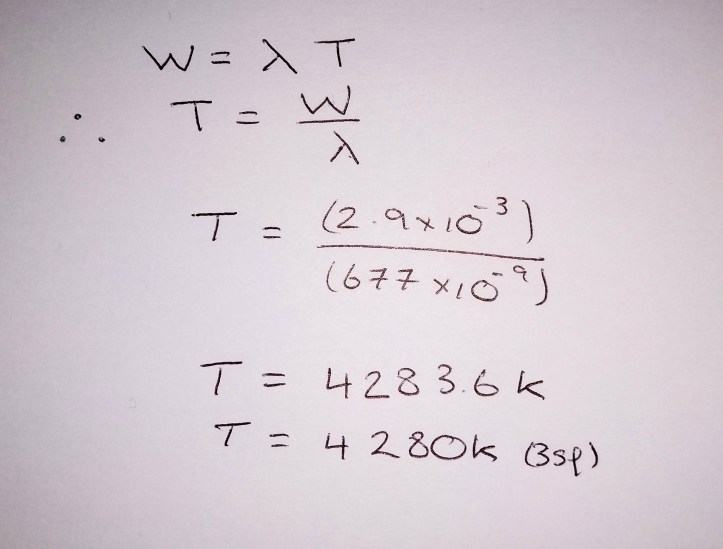 W = λ T
∴ T = W/λ
T = (2.9×10⁻³)/(677×10⁻⁹)
T = 4283.6 k
T = 4280k (3sf)